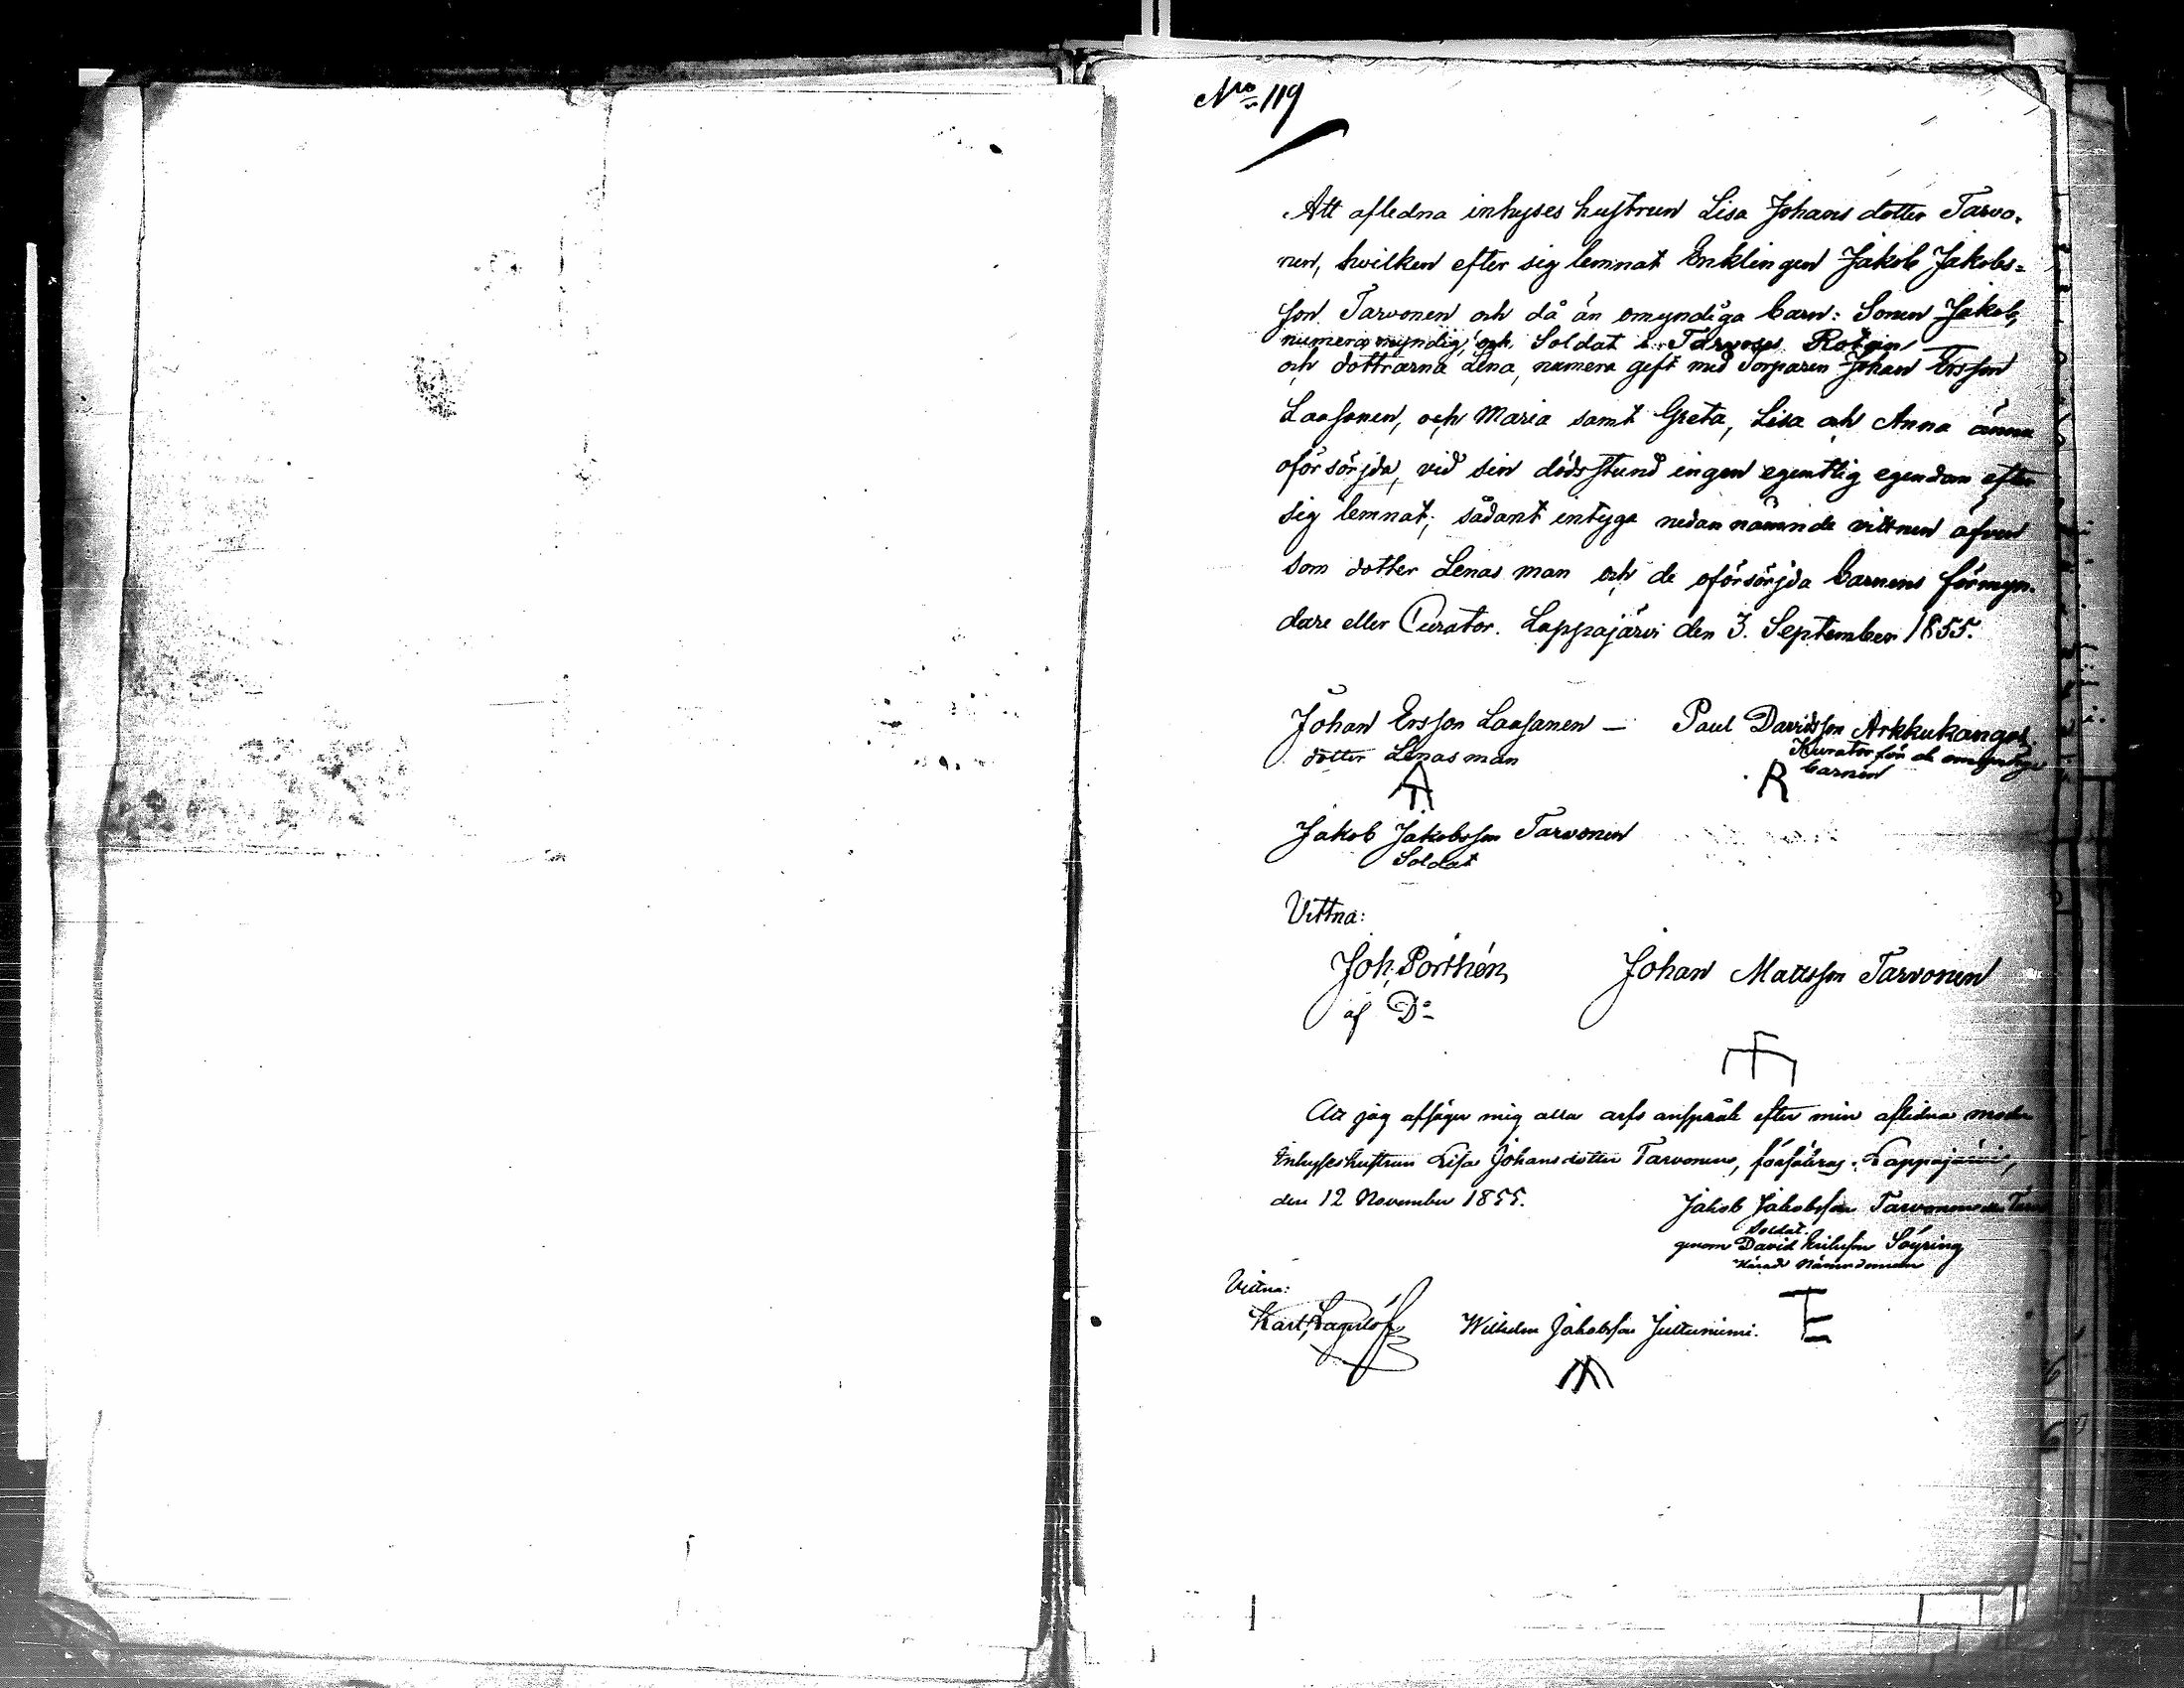 No 119
Att afledna inhyses hustrun Lisa Johans dotter Tarvo-
nen, hvilken efter sig lemnat Enklingen Jakob Jakobs=
son Tarvonen och då än omyndiga barn: Sonen Jakob,
numera myndig, och Soldat i Tarvoses Rotan
och dottrarna Lena, numera gift med Torparen Johan Ersson
Laasonen, och Maria samt Greta, Lisa och Anna ännu
oförsörjda, vid sin dödsstund ingen egentlig egendom efter
sig lemnat; sådant intyga nedannämnde vittnen äfven
som dotter Lenas man och de oförsörjda barnens förmyn-
dare eller Curator. Lappajärvi den 3. September 1855.
Johan Ersson Laasanen — Paul Davidsson Arkkukangas
dotter Lenas man Kurator för de omyndige
barnen
R
Jakob Jakobsson Tarvonen
Soldat
Vittna:
Joh. Porthén, Johan Mattsson Tarvonen
af Do
Att jag afsäger mig alla arfs anspråk efter min aflidna moder
Inhyseshustrun Lisa Johansdotter Tarvonen, försäkras. Lappajärvi,
den 12 November 1855. Jakob Jakobsson Tarvonen
Soldat.
genom David Eriksson Söyring
Härads Nämndeman
Vittna:
Karl Lagerlöf Wilhelm Jakobsson